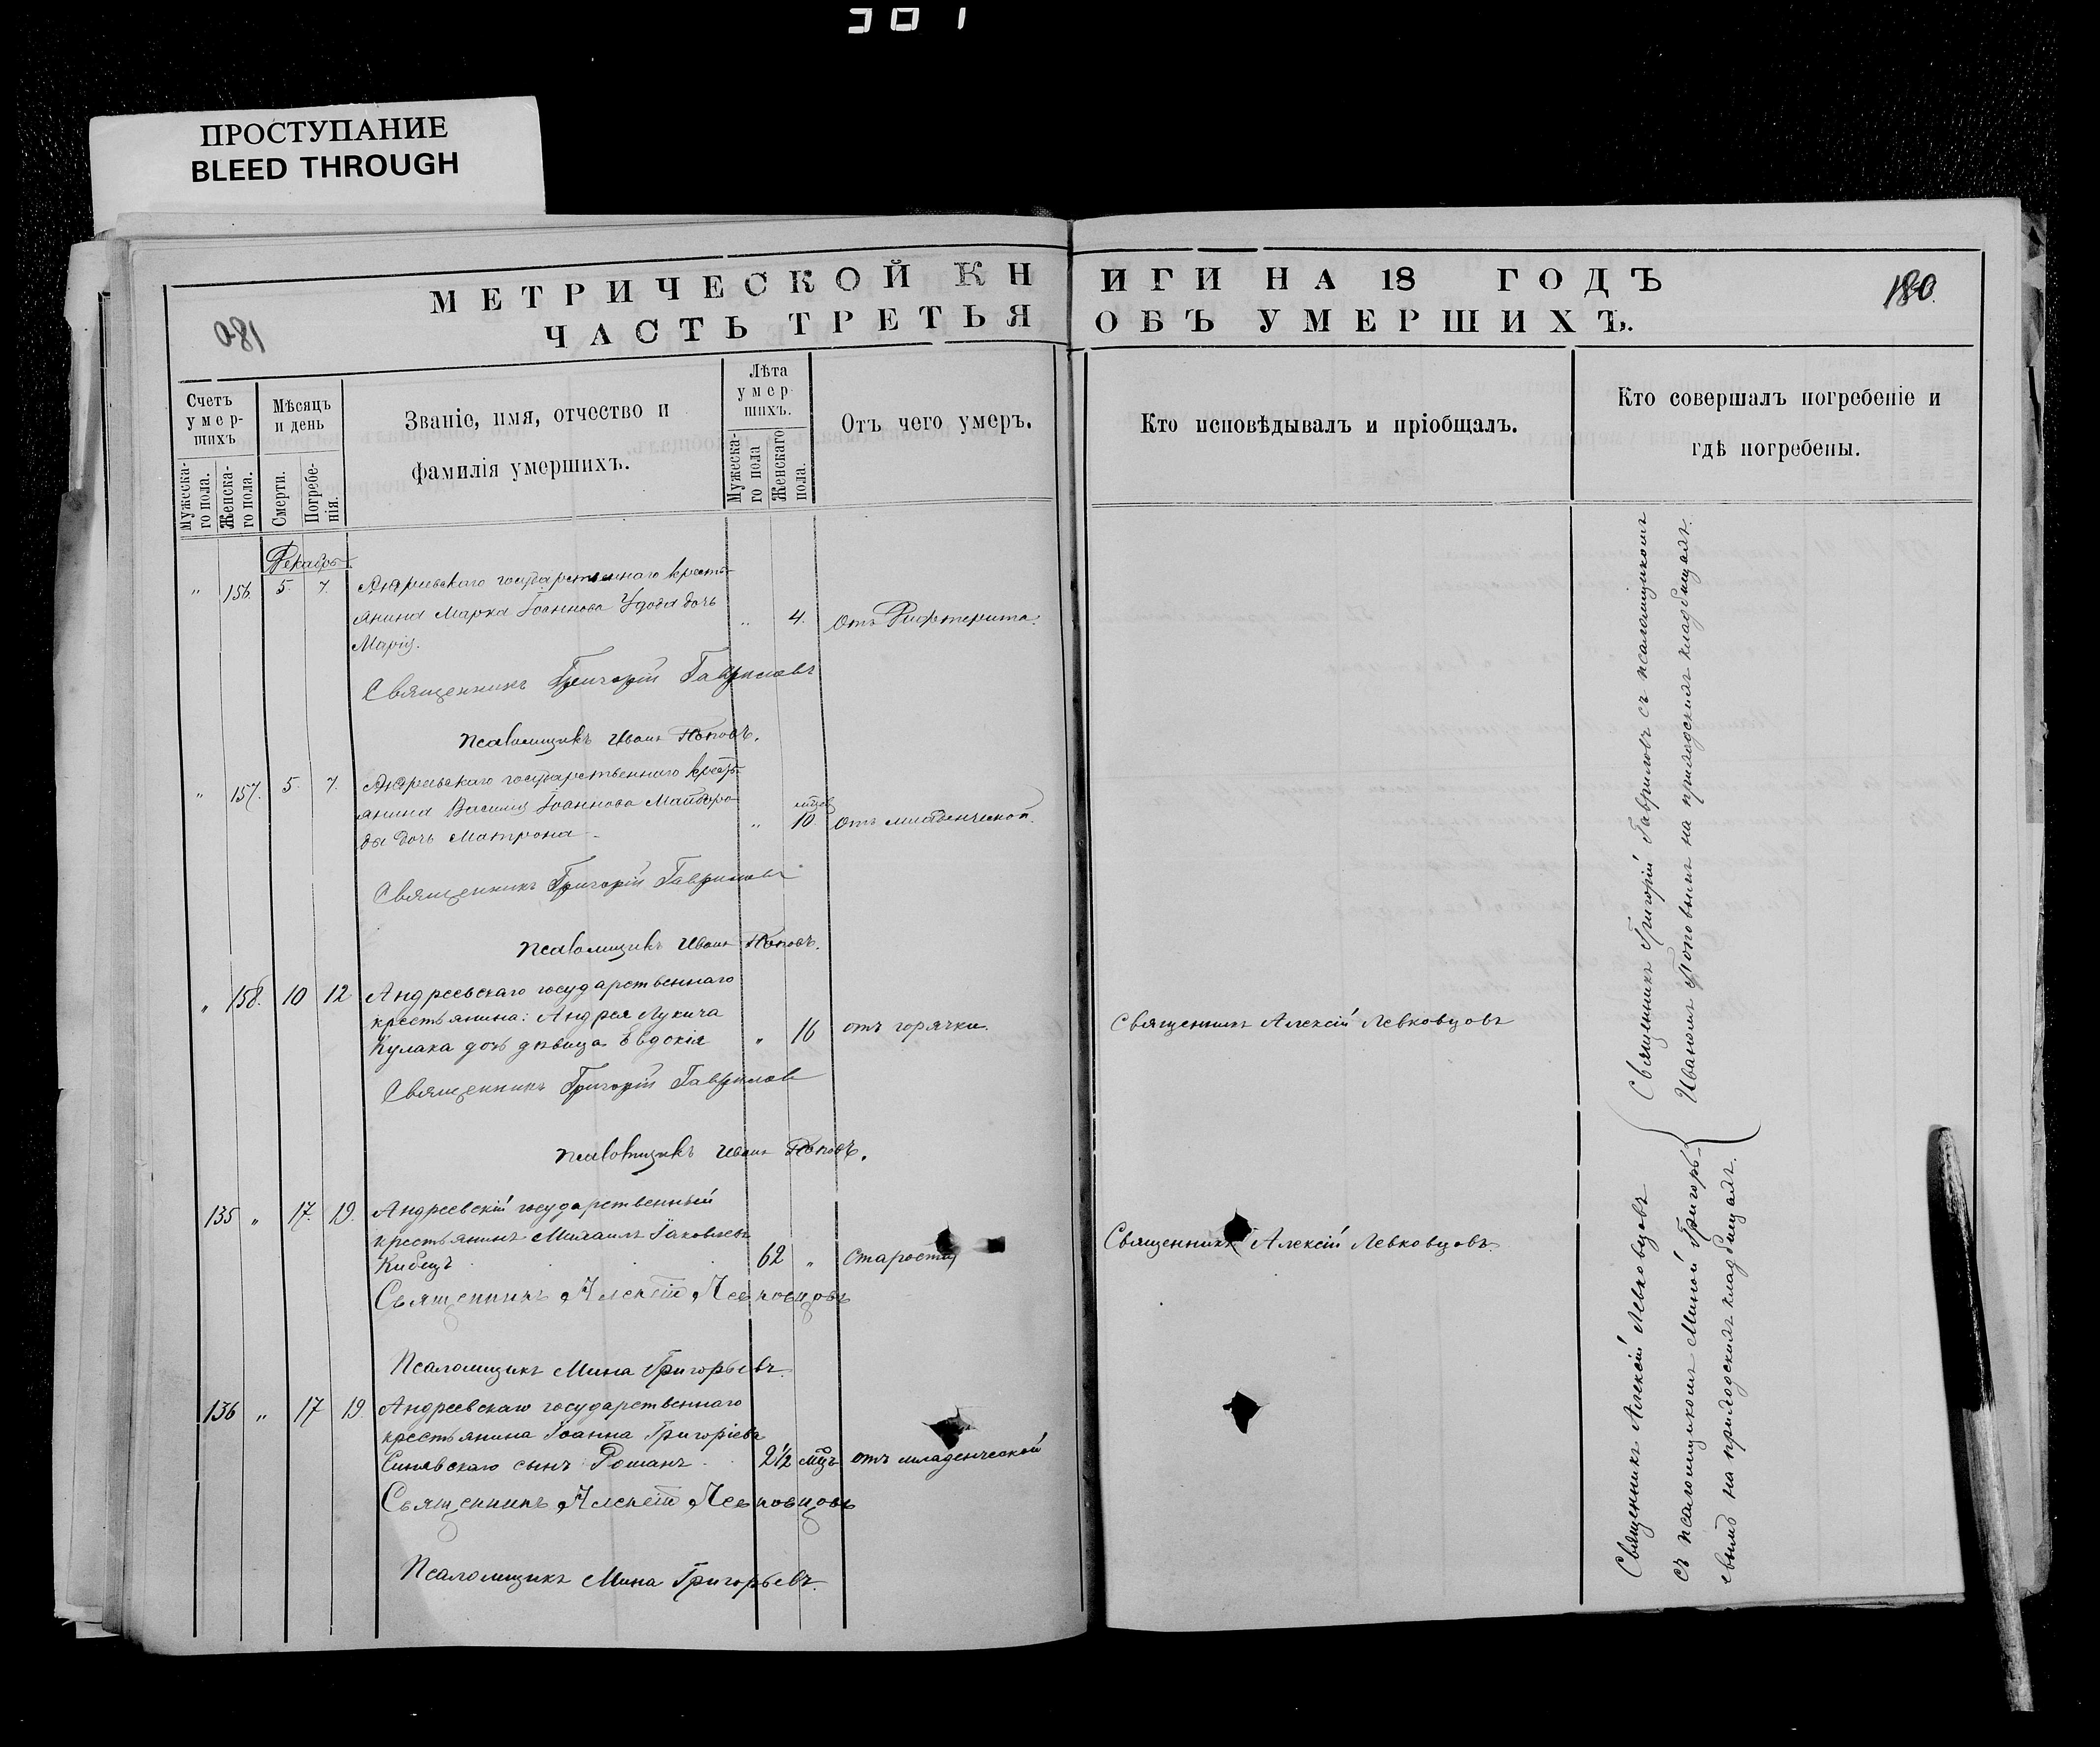 301
ПРОСТУПАНИЕ
BLEED THROUGH
МЕТРИЧЕСКОЙ КНИГИ НА 18 ГОДЪ
ЧАСТЬ ТРЕТЬЯ ОБЪ УМЕРШИХЪ.
180
180.
Счетъ умер-шихъ
Мужеска-го пола.
Женска-го пола.
Мѣсяцъ и день
Смерти.
Погребе-нія.
Званіе, имя, отчество и
фамилія умершихъ.
Лѣта умер-шихъ.
Мужеска-го пола
Женскаго пола.
Отъ чего умеръ.
Кто исповѣдывалъ и пріобщалъ.
Кто совершалъ погребеніе и
гдѣ погребены.
Декабрь
" 156. 5. 7. Андреевскаго государственнаго кресть-
янина Марка Іоаннова Удода дочь
Марія. " 4. Отъ Дифтерита.
Священникъ Григорій Гавриловъ
Псаломщикъ Иванъ Поповъ.
" 157. 5. 7. Андреевскаго государственнаго кресть-
янина Василія Іоаннова Майборо-
ды дочь Матрона " 10 Отъ младенческой.
Священникъ Григорій Гавриловъ
Псаломщикъ Иванъ Поповъ.
" 158. 10 12 Андреевскаго государственнаго
крестьянина: Андрея Лукича
Кулака дочь дѣвица Евдокія " 16 отъ горячки. Священникъ Алексій Левковцовъ
Священникъ Григорій Гавриловъ
Псаломщикъ Иванъ Поповъ.
Священникъ Григорій Гавриловъ съ псаломщикомъ
Иваномъ Поповымъ на приходскомъ кладбищѣ.
135 " 17. 19. Андреевскій государственный
крестьянинъ Михаилъ Іаковлевъ
Кибецъ 62 " Старости Священникъ Алексій Левковцовъ.
Священникъ Алексій Левковцовъ
Псаломщикъ Мина Григорьевъ.
136 " 17 19. Андреевскаго государственнаго
крестьянина Іоанна Григоріева
Синявскаго сынъ Романъ 2½ мцъ отъ младенческой
Священникъ Алексій Левковцовъ
Псаломщикъ Мина Григорьевъ.
Священникъ Алексій Левковцовъ
съ псаломщикомъ Миной Григорь-
евымъ на приходскомъ кладбищѣ.